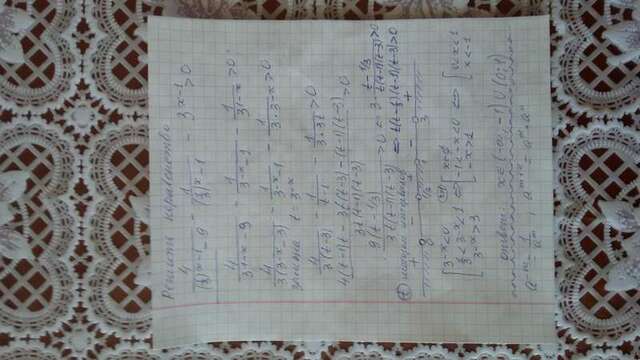 Решить неравенство
4/((1/3)^(x-1) - 9) - 1/((1/3)^x - 1) - 3^(x-1) > 0
4/(3^(1-x) - 9) - 1/(3^(-x) - 1) - 1/3^(1-x) > 0
4/(3(3^(-x) - 3)) - 1/(3^(-x) - 1) - 1/(3·3^(-x)) > 0
замена t = 3^(-x)
4/(3(t-3)) - 1/(t-1) - 1/(3t) > 0
(4(t-1)t - 3t(t-3) - (t-1)(t-3))/(3t(t-1)(t-3)) > 0
(9(t - 1/3))/(3t(t-1)(t-3)) > 0 ⇔ 3·(t - 1/3)/(t(t-1)(t-3)) > 0
⇔ t(t - 1/3)(t-1)(t-3) > 0
методом интервалов
+ - + - +
0 1/3 1 3
[ 3^(-x) < 0
1/3 < 3^(-x) < 1 ⇔ [ -1 < -x < 0 ⇔ [ 0 < x < 1
3^(-x) > 3 -x > 1 x < -1
ответ: x ∈ (-∞, -1) ∪ (0; 1)
a^(-m) = 1/a^m, a^(m+n) = a^m · a^n